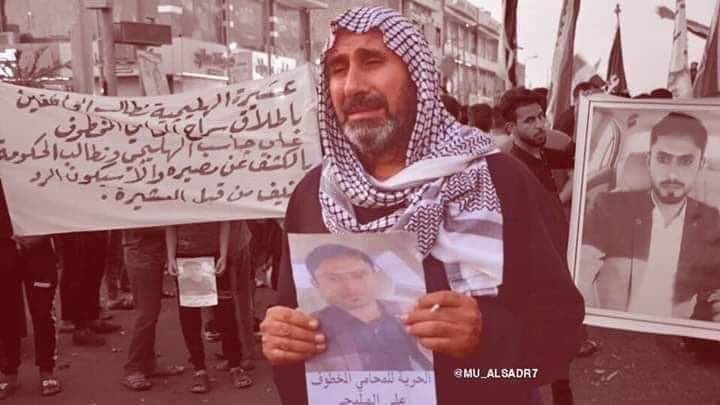 عشيرة الهليجية نطالب الخاطفين
باطلاق سراح المحامي المخطوف
علي جاسب الهليجي ونطالب الحكومة
بالكشف عن مصيره والا سيكون الرد
عنيف من قبل العشيرة .
الحرية للمحامي المخطوف
علي الهليجي
@MU_ALSADR7